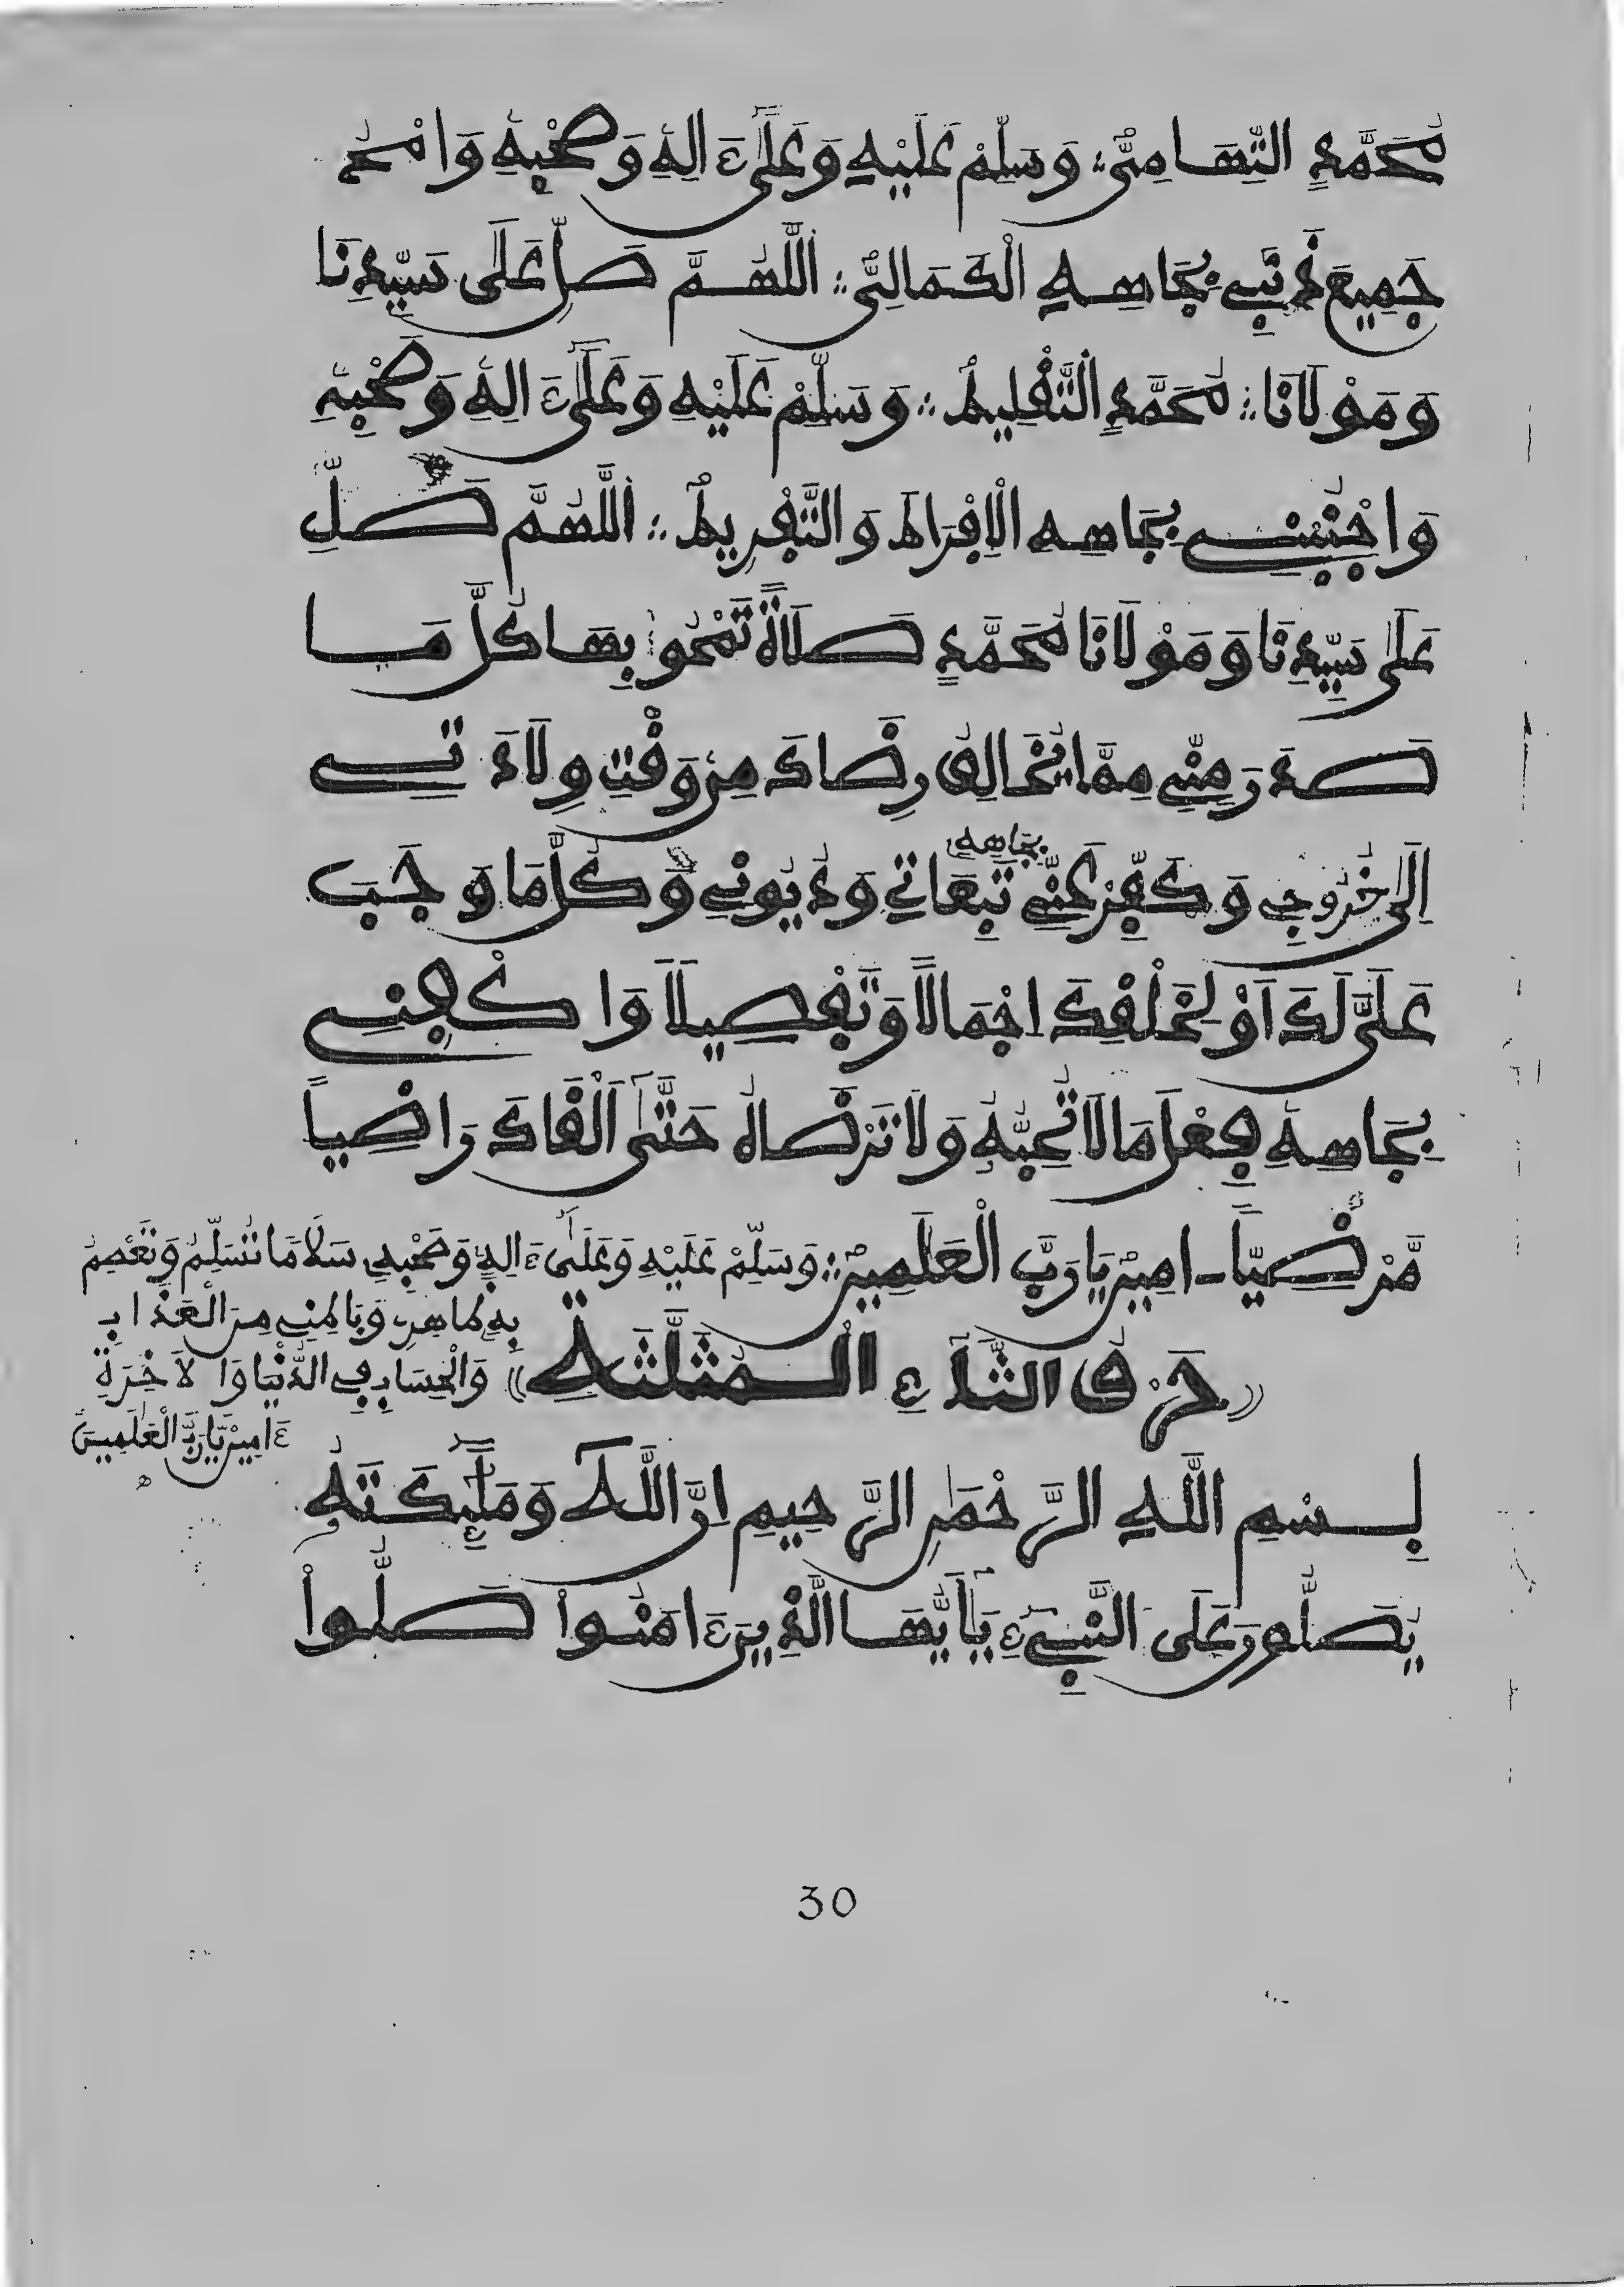 مُحَمَّدٍ التِّهَامِيِّ وَسَلِّمْ عَلَيْهِ وَعَلَىٰ ءَالِهِ وَصَحْبِهِ وَامْحُ
جَمِيعَ ذَنْبِي بِجَاهِهِ الْكَمَالِيِّ اللَّهُمَّ صَلِّ عَلَى سَيِّدِنَا
وَمَوْلَانَا مُحَمَّدٍ التَّقْلِيطِ وَسَلِّمْ عَلَيْهِ وَعَلَىٰ ءَالِهِ وَصَحْبِهِ
وَاجْنُبْنِي بِجَاهِهِ الْإِفْرَاطَ وَالتَّفْرِيطَ اللَّهُمَّ صَلِّ
عَلَى سَيِّدِنَا وَمَوْلَانَا مُحَمَّدٍ صَلَاةً تَمْحُو بِهَا كُلَّ مَا
صَدَرَ مِنِّي مِمَّا يُخَالِفُ رِضَاكَ مِن وَقْتِ وِلَادَتِي
إِلَى خُرُوجِي وَكَفِّرْ عَنِّي بِجَاهِهِ تَبِعَاتِي وَدُيُونِي وَكُلَّ مَا وَجَبَ
عَلَيَّ لَكَ أَوْ لِخَلْقِكَ اجْمَالًا وَتَفْصِيلًا وَاكْفِنِي
بِجَاهِهِ فِعْلَ مَا لَا تُحِبُّهُ وَلَا تَرْضَاهُ حَتَّىٰ أَلْقَاكَ رَاضِياً
مَّرْضِيّاً ـ امِين يَا رَبَّ الْعَٰلَمِينَ وَسَلِّمْ عَلَيْهِ وَعَلَىٰ ءَالِهِ وَصَحْبِهِ سَلَامًا تُسَلِّمُ وَتَعْصِمُ
بِهِ ظَاهِرِي وَبَاطِنِي مِنَ الْعَذَابِ
وَالْحِسَابِ فِي الدُّنْيَا وَالَاخِرَةِ
ءَامِين يَا رَبَّ الْعَٰلَمِينَ
((حَرْفُ الثَّاءِ الْمُثَلَّثَةِ))
بِسْمِ اللَّهِ الرَّحْمَٰنِ الرَّحِيمِ إِنَّ اللَّهَ وَمَلَٰئِكَتَهُ
يُصَلُّونَ عَلَى النَّبِيِّ يَٰأَيُّهَا الَّذِينَ ءَامَنُوا صَلُّوا
30